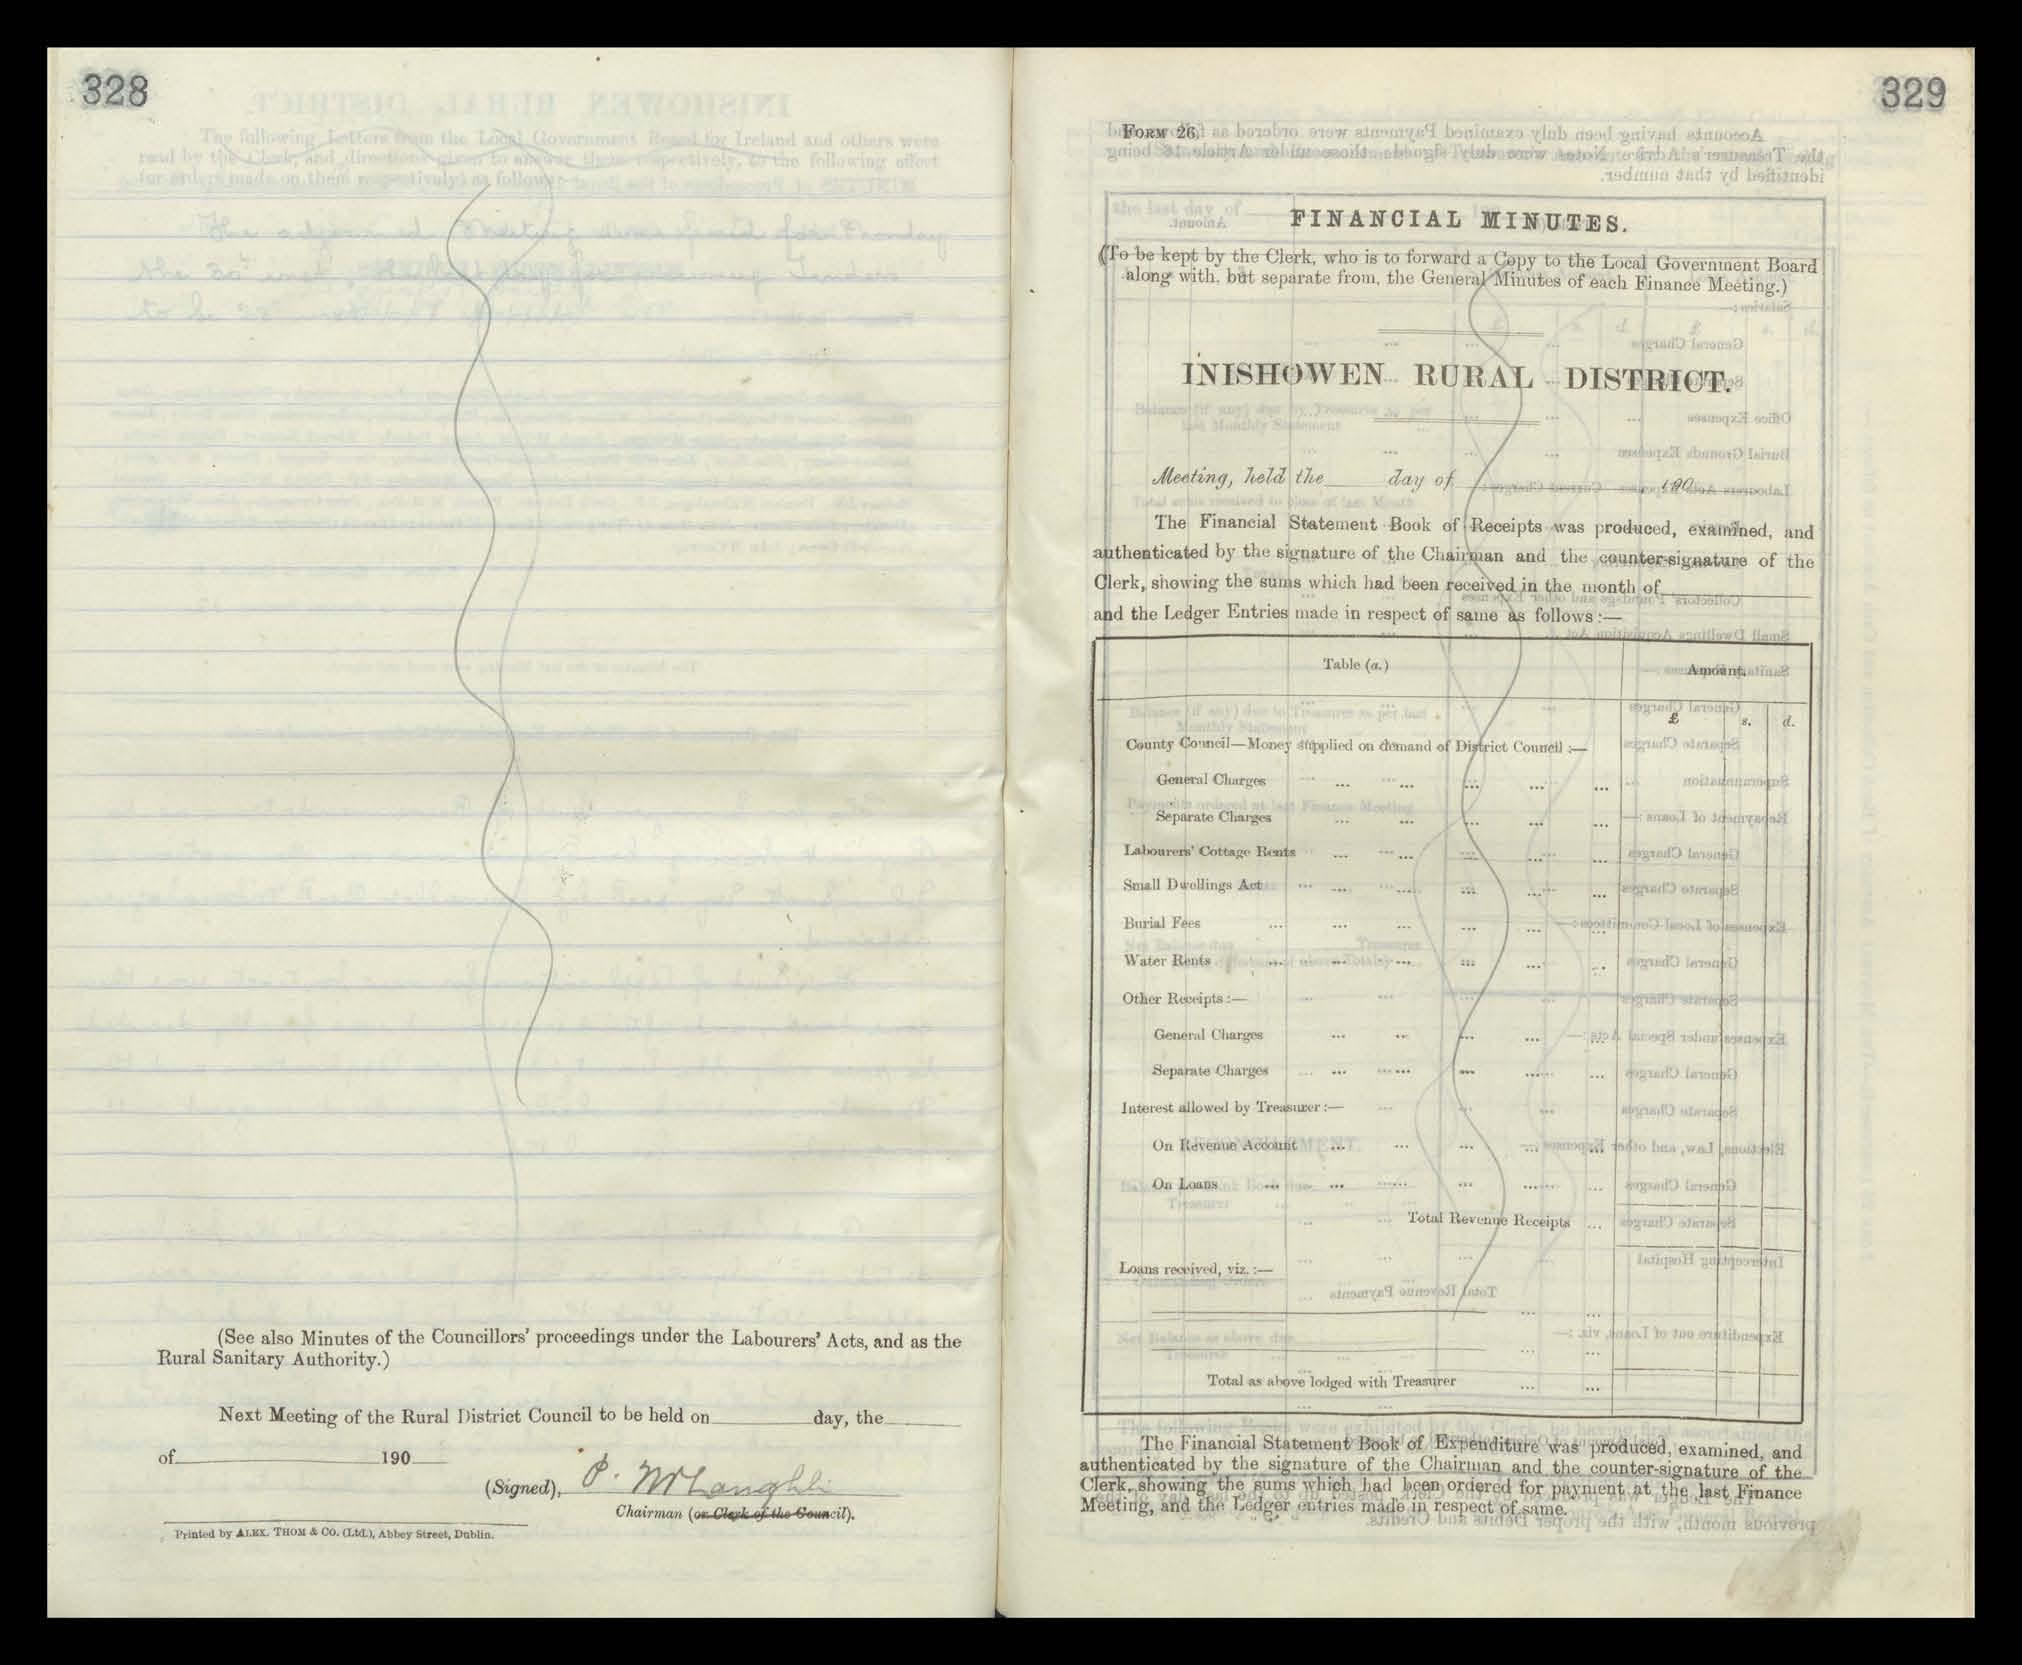 328
(See also Minutes of the Councillors' proceedings under the Labourers' Acts, and as the
Rural Sanitary Authority.)
Next Meeting of the Rural District Council to be held on day, the
of 190
(Signed), P. McLaughlin
Chairman (or Clerk of the Council).
Printed by ALEX. THOM & CO. (Ltd.), Abbey Street, Dublin.
329
FORM 26.
FINANCIAL MINUTES.
(To be kept by the Clerk, who is to forward a Copy to the Local Government Board
along with, but separate from, the General Minutes of each Finance Meeting.)
INISHOWEN RURAL DISTRICT.
Meeting, held the day of 190
The Financial Statement Book of Receipts was produced, examined, and
authenticated by the signature of the Chairman and the counter-signature of the
Clerk, showing the sums which had been received in the month of
and the Ledger Entries made in respect of same as follows :—
Table (a.) Amount.
£ s. d.
County Council—Money supplied on demand of District Council :—
General Charges ... ... ... ... ...
Separate Charges ... ... ... ... ...
Labourers' Cottage Rents ... ... ... ... ...
Small Dwellings Act ... ... ... ... ...
Burial Fees ... ... ... ... ... ...
Water Rents ... ... ... ... ... ...
Other Receipts :—
General Charges ... ... ... ... ...
Separate Charges ... ... ... ... ...
Interest allowed by Treasurer :—
On Revenue Account ... ... ... ... ...
On Loans ... ... ... ... ... ...
Total Revenue Receipts ...
Loans received, viz. :—
... ...
... ...
Total as above lodged with Treasurer ... ...
The Financial Statement Book of Expenditure was produced, examined, and
authenticated by the signature of the Chairman and the counter-signature of the
Clerk, showing the sums which had been ordered for payment at the last Finance
Meeting, and the Ledger entries made in respect of same.